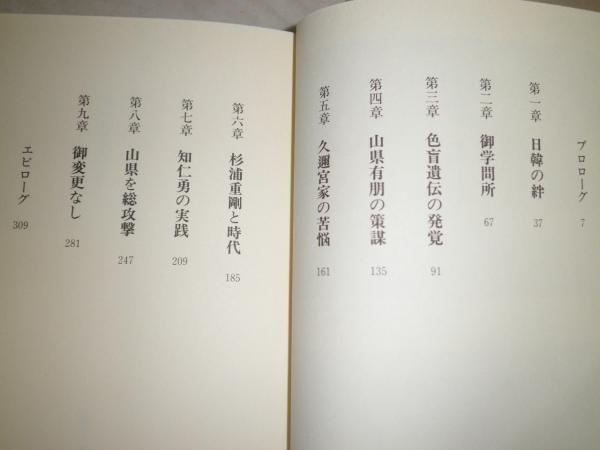 プロローグ 7
第一章 日韓の絆 37
第二章 御学問所 67
第三章 色盲遺伝の発覚 91
第四章 山県有朋の策謀 135
第五章 久邇宮家の苦悩 161
第六章 杉浦重剛と時代 185
第七章 知仁勇の実践 209
第八章 山県を総攻撃 247
第九章 御変更なし 281
エピローグ 309